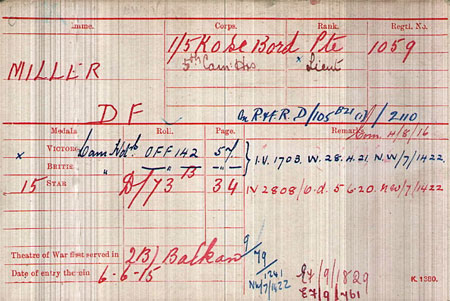 Name. Corps. Rank. Regtl. No.
1/5 K.O.Sco Bord Pte 1059
MILLER 5th Cam: Hrs x Lieut
D F On R & F. R. D/105 B21 (1) / 2110
Medals Roll. Page. Remarks Com. 4/8/16
x VICTORY Cam Hdrs OFF 142 57 I.V. 1703. W. 28.4.21. N.W/7/1422.
BRITISH " " 13 "
15 STAR D/73 34 IV 2808/0.d. 5.6.20. NW/7/1422
Theatre of War first served in (2B) Balkan 9/79
Date of entry therein 6-6-15 1241
NW/7/1422
K. 1380.